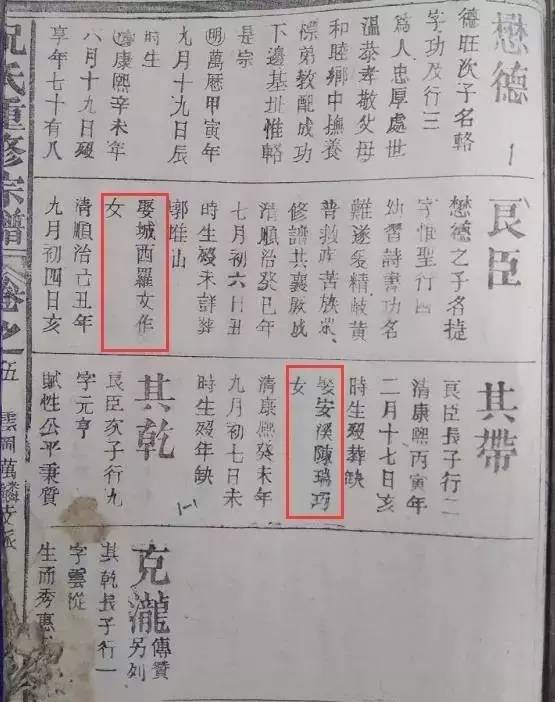 懋德
德旺次子名輅
字功及行三
爲人忠厚處世
溫恭孝敬父母
和睦鄉中撫養
標弟教配成功
下邊基址惟輅
是宗
明萬曆甲寅年
九月十九日辰
時生
康熙辛未年
八月十九日殁
享年七十有八
良臣
懋德之子名捷
字惟聖行四
幼習詩書功名
難遂爰精岐黃
普救疾苦族衆
修譜共襄厥成
清順治癸巳年
七月初六日丑
時生殁未詳葬
郭 山
娶城西羅文作
女
清順治己丑年
九月初四日亥
其帶
良臣長子行二
清康熙丙寅年
二月十七日亥
時生殁葬缺
娶安溪陳瑞巧
女
清康熙癸未年
九月初七日未
時生殁年缺
其乾
良臣次子行九
字元亨
賦性公平秉質
克瀧
傳贊
另列
其乾長子行一
字雲從
生而秀惠
氏重修宗譜
卷之五
萬麟支派